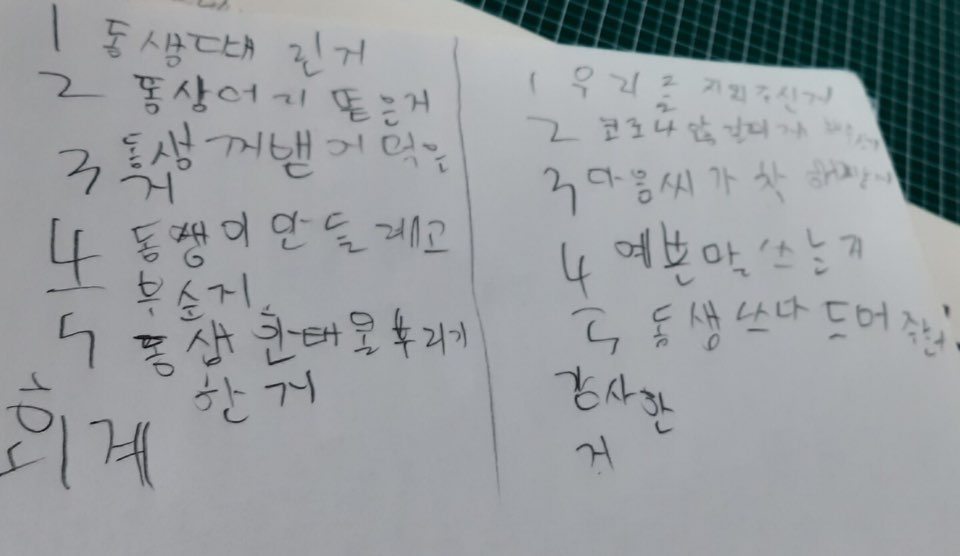 1 동생때 린거
2 동상어지 뜯은거
3 동생꺼뺃어먹은
거
4 동생이 안들레고
부순거
5 동생한태물뿌리기
한거
회계
1 우리를 지켜주신거
2 코로나 않걸리게
3 마음씨가 착
4 예쁜말쓰는거
5 동생쓰다드머
감사한
거